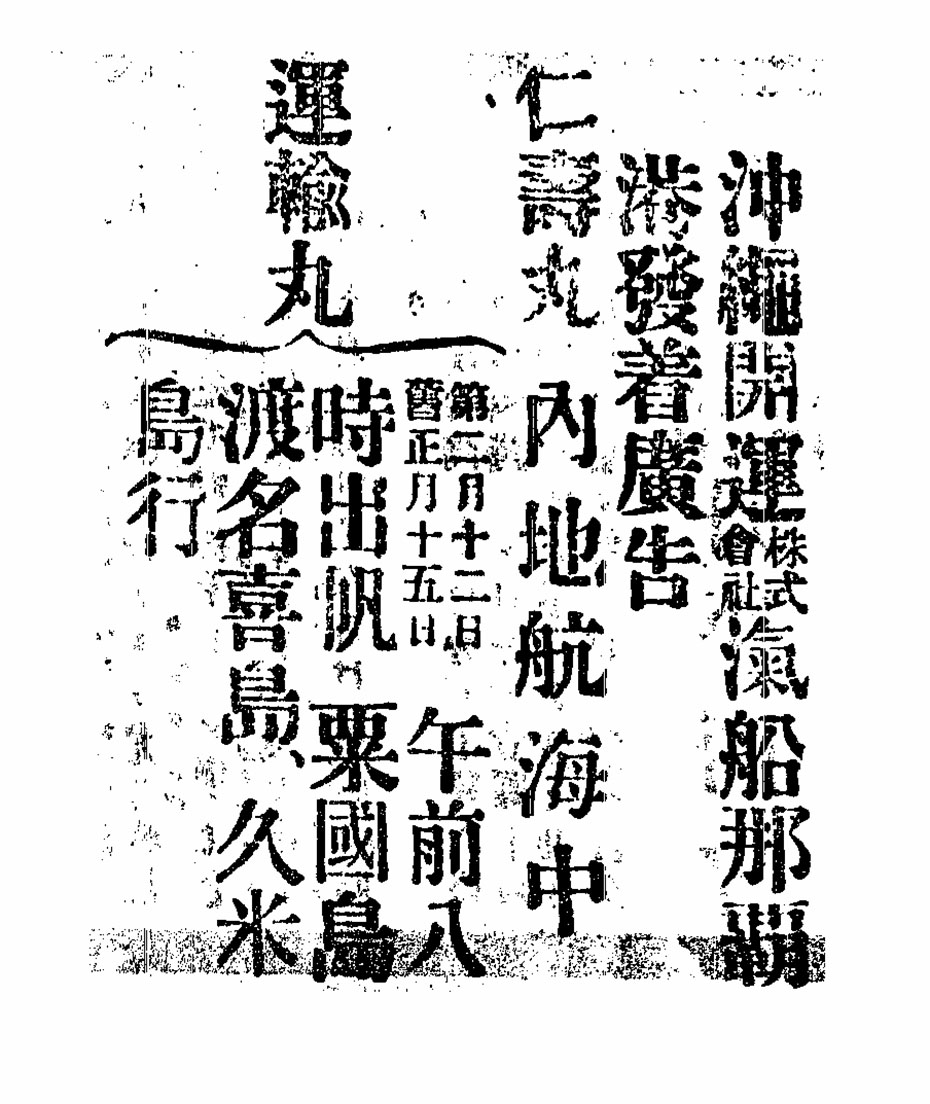 沖繩開運株式會社滊船那覇
港發着廣告
仁壽丸 內地航海中
運輸丸
第二月十二日
舊正月十五日
午前八
時出帆 粟國島
渡名喜島、久米
島行